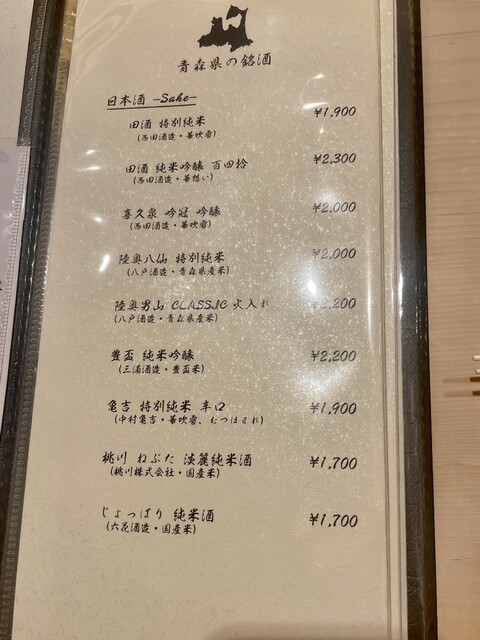 青森県の銘酒
日本酒 -Sake-
田酒 特別純米 ¥1,900
(西田酒造・華吹雪)
田酒 純米吟醸 百四拾 ¥2,300
(西田酒造・華想い)
喜久泉 吟冠 吟醸 ¥2,000
(西田酒造・華吹雪)
陸奥八仙 特別純米 ¥2,000
(八戸酒造・青森県産米)
陸奥男山 CLASSIC 火入れ ¥2,200
(八戸酒造・青森県産米)
豊盃 純米吟醸 ¥2,200
(三浦酒造・豊盃米)
亀吉 特別純米 辛口 ¥1,900
(中村亀吉・華吹雪、むつほまれ)
桃川 ねぶた 淡麗純米酒 ¥1,700
(桃川株式会社・国産米)
じょっぱり 純米酒 ¥1,700
(六花酒造・国産米)